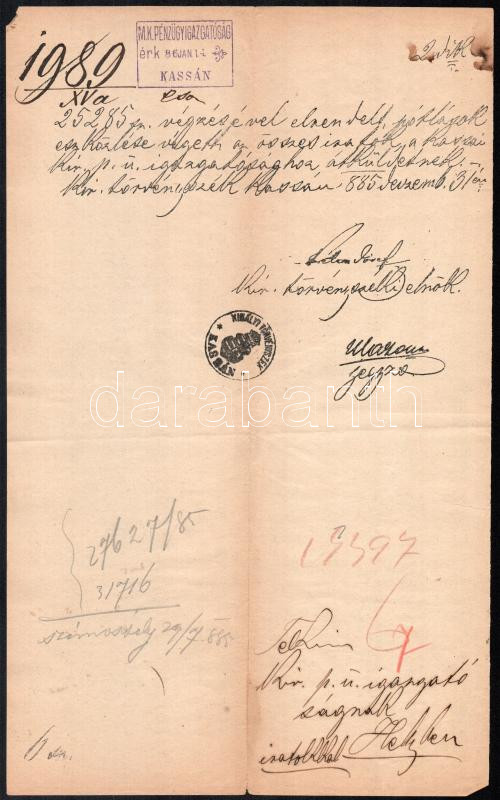 1989
M.K. PÉNZÜGYIGAZGATÓSÁG
érk 86 JAN 14
KASSÁN
XVa
25285 sz. végzésével elrendelt pótlások
eszközlése végett az összes iratok a kassai
kir. p. ü. igazgatósághoz átküldetnek.
Kir. törvényszék Kassán 885 deczemb. 31én
József
Kir. törvényszéki elnök.
jegyző
KIRÁLYI TÖRVÉNYSZÉK
KASSA
darabanth
27627/85
31716
számosztály 29/7 885
15397
6/7
Tek.
Kir. p. ü. igazgató
ságnak
Helyben
iratokkal